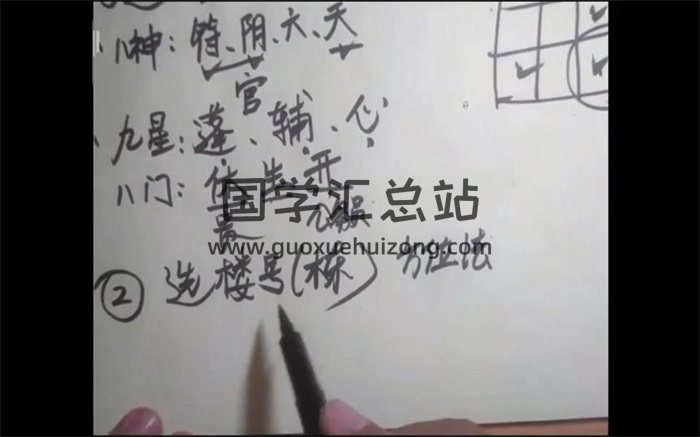 八神：符、阴、六、天
官
九星：蓬、辅、心
八门：休、生、开
国学汇总站
www.guoxuehuizong.com
② 选楼号(栋) 方位法